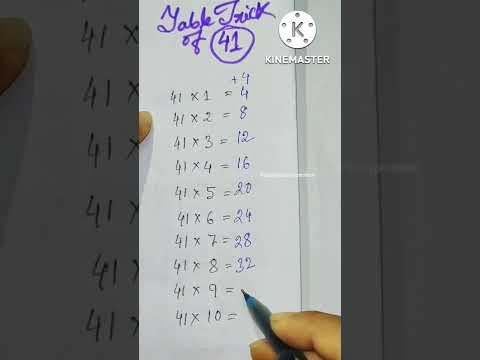 Table Trick
of 41
KINEMASTER
+4
41 × 1 = 4
41 × 2 = 8
41 × 3 = 12
41 × 4 = 16
41 × 5 = 20
41 × 6 = 24
41 × 7 = 28
41 × 8 = 32
41 × 9 =
41 × 10 =